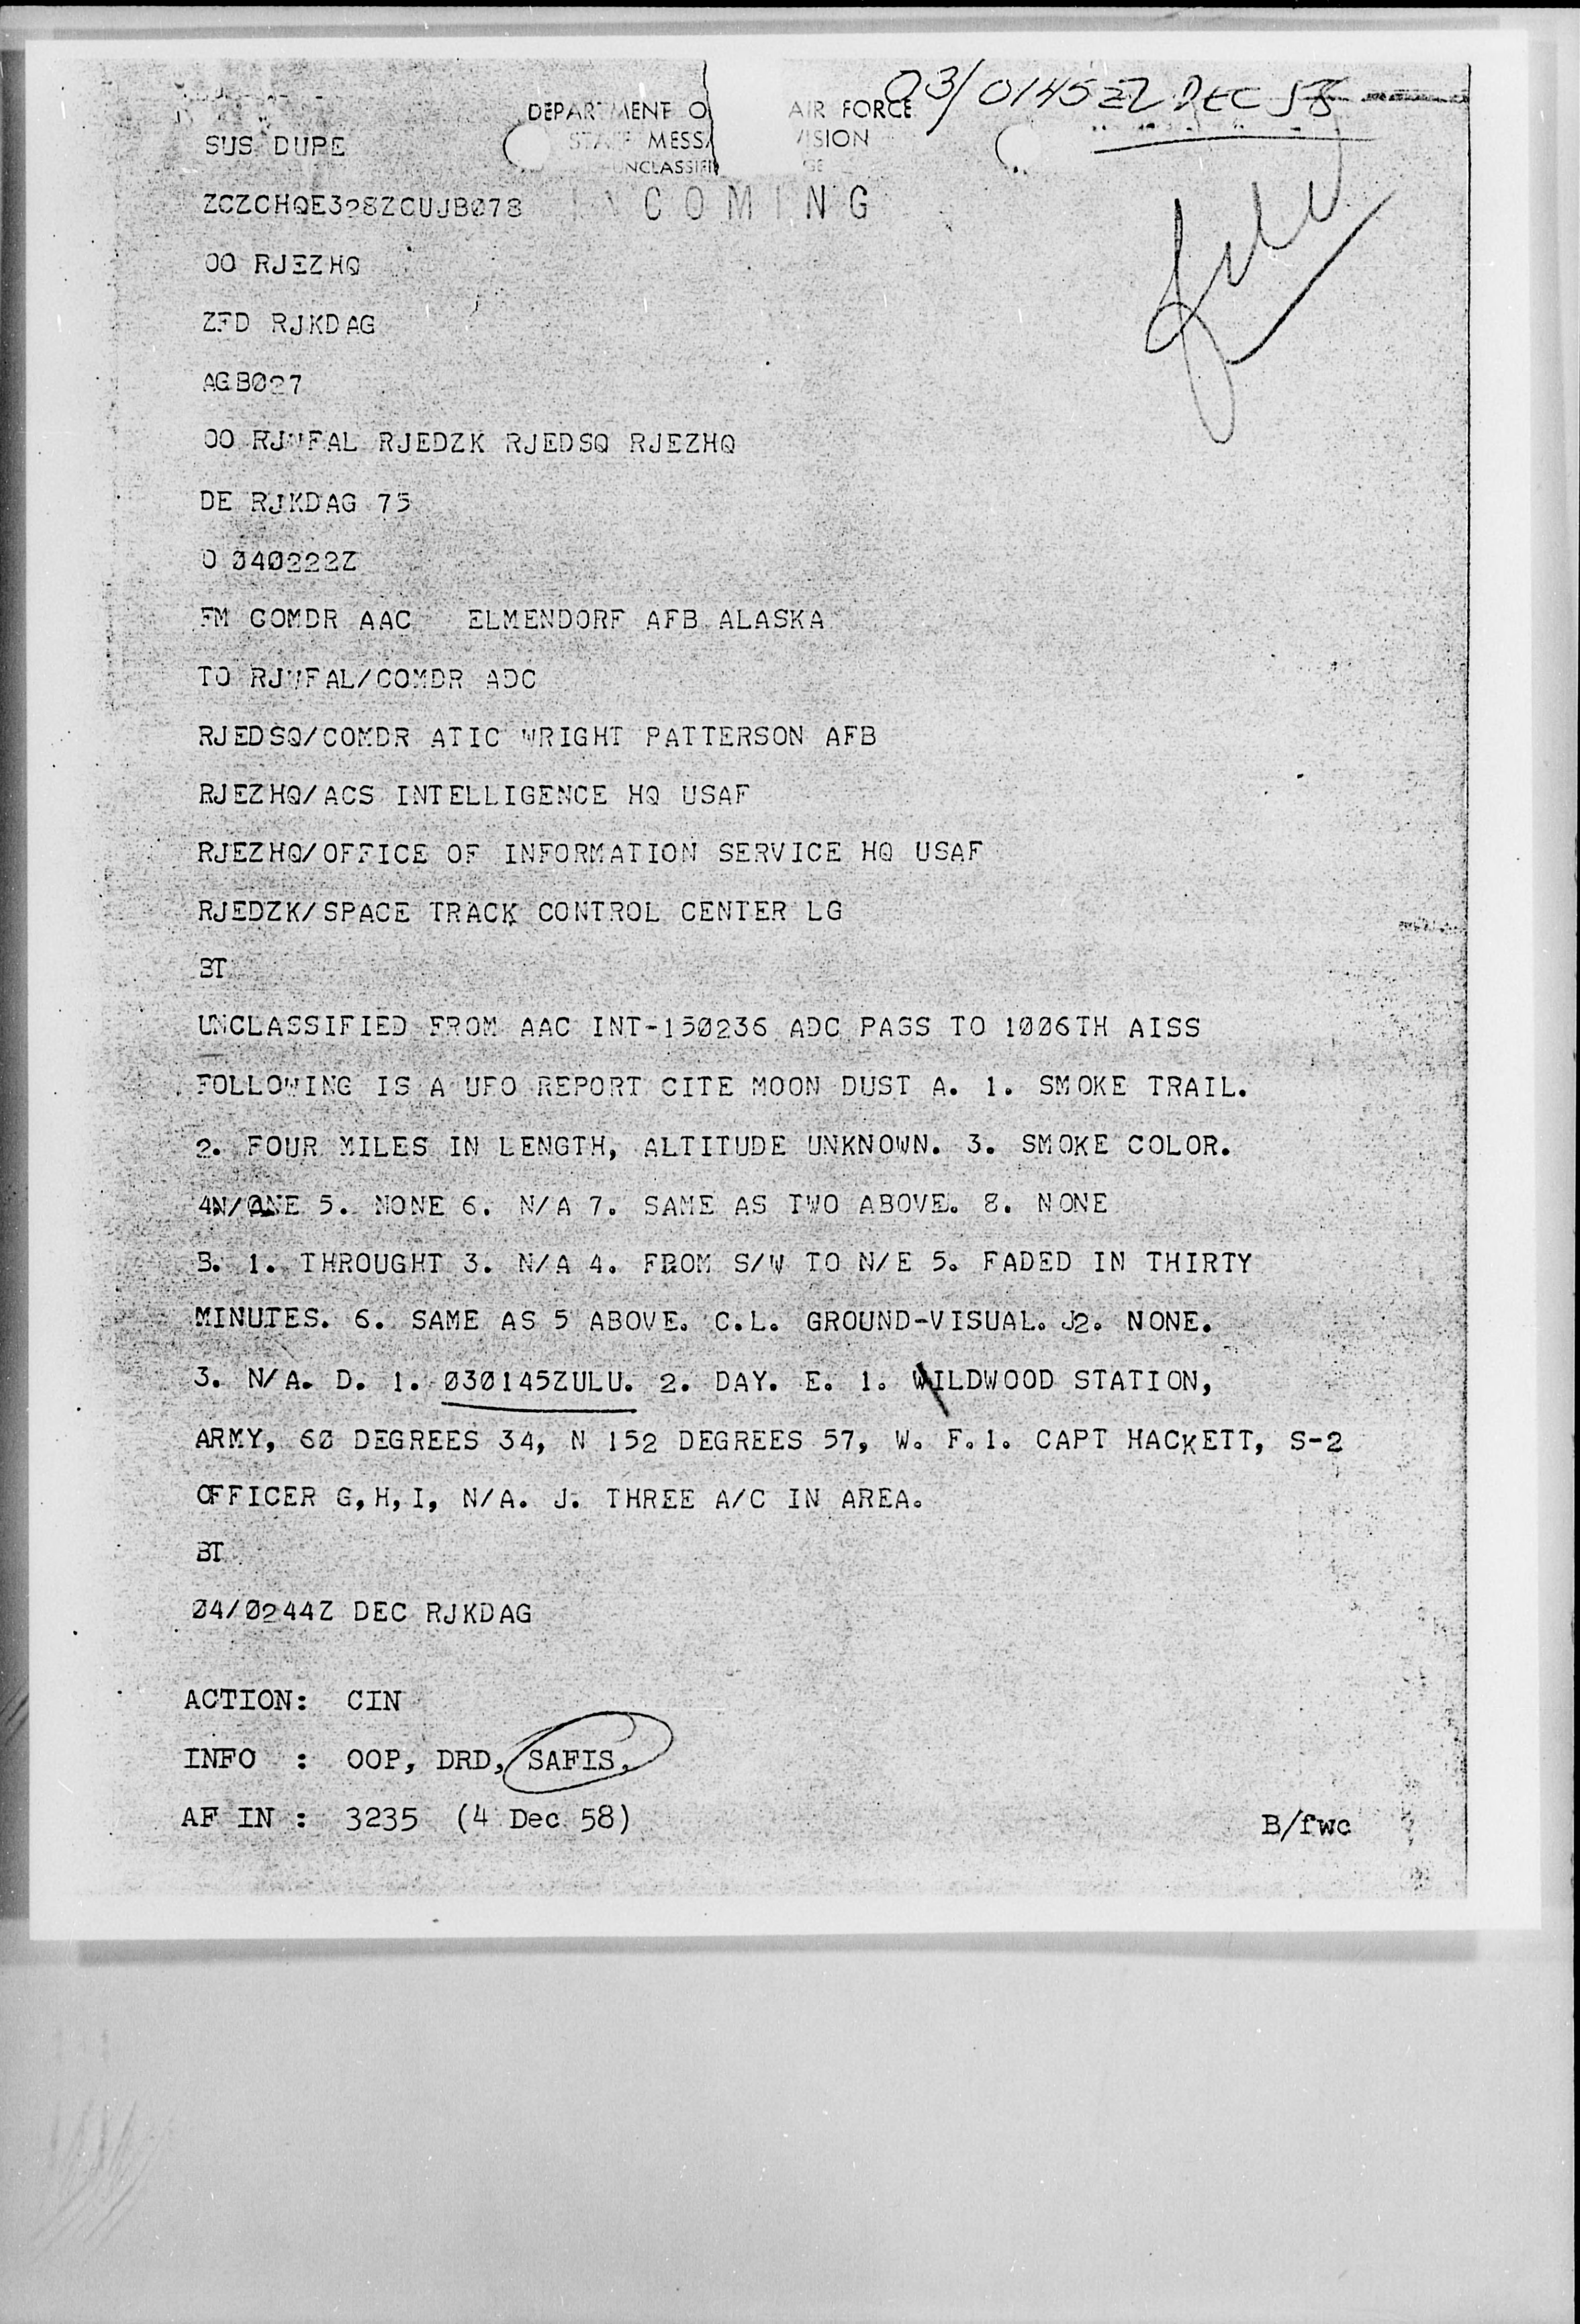 03/0145Z DEC 58
DEPARTMENT O AIR FORCE
STAFF MESSA VISION
UNCLASSIFI GE
SUS DUPE
INCOMING
ZCZCHQE328ZCUJB078
file
OO RJEZHQ
ZFD RJKDAG
AGB027
OO RJWFAL RJEDZK RJEDSQ RJEZHQ
DE RJKDAG 75
O 040222Z
FM COMDR AAC ELMENDORF AFB ALASKA
TO RJWFAL/COMDR ADC
RJEDSQ/COMDR ATIC WRIGHT PATTERSON AFB
RJEZHQ/ACS INTELLIGENCE HQ USAF
RJEZHQ/OFFICE OF INFORMATION SERVICE HQ USAF
RJEDZK/SPACE TRACK CONTROL CENTER LG
BT
UNCLASSIFIED FROM AAC INT-150236 ADC PASS TO 1006TH AISS
FOLLOWING IS A UFO REPORT CITE MOON DUST A. 1. SMOKE TRAIL.
2. FOUR MILES IN LENGTH, ALTITUDE UNKNOWN. 3. SMOKE COLOR.
4N/ONE 5. NONE 6. N/A 7. SAME AS TWO ABOVE. 8. NONE
B. 1. THROUGHT 3. N/A 4. FROM S/W TO N/E 5. FADED IN THIRTY
MINUTES. 6. SAME AS 5 ABOVE. C.L. GROUND-VISUAL. J2. NONE.
3. N/A. D. 1. 030145ZULU. 2. DAY. E. 1. WILDWOOD STATION,
ARMY, 60 DEGREES 34, N 152 DEGREES 57, W. F.1. CAPT HACKETT, S-2
OFFICER G,H,I, N/A. J. THREE A/C IN AREA.
BT
04/0244Z DEC RJKDAG
ACTION: CIN
INFO : OOP, DRD, SAFIS,
AF IN : 3235 (4 Dec 58)
B/fwc